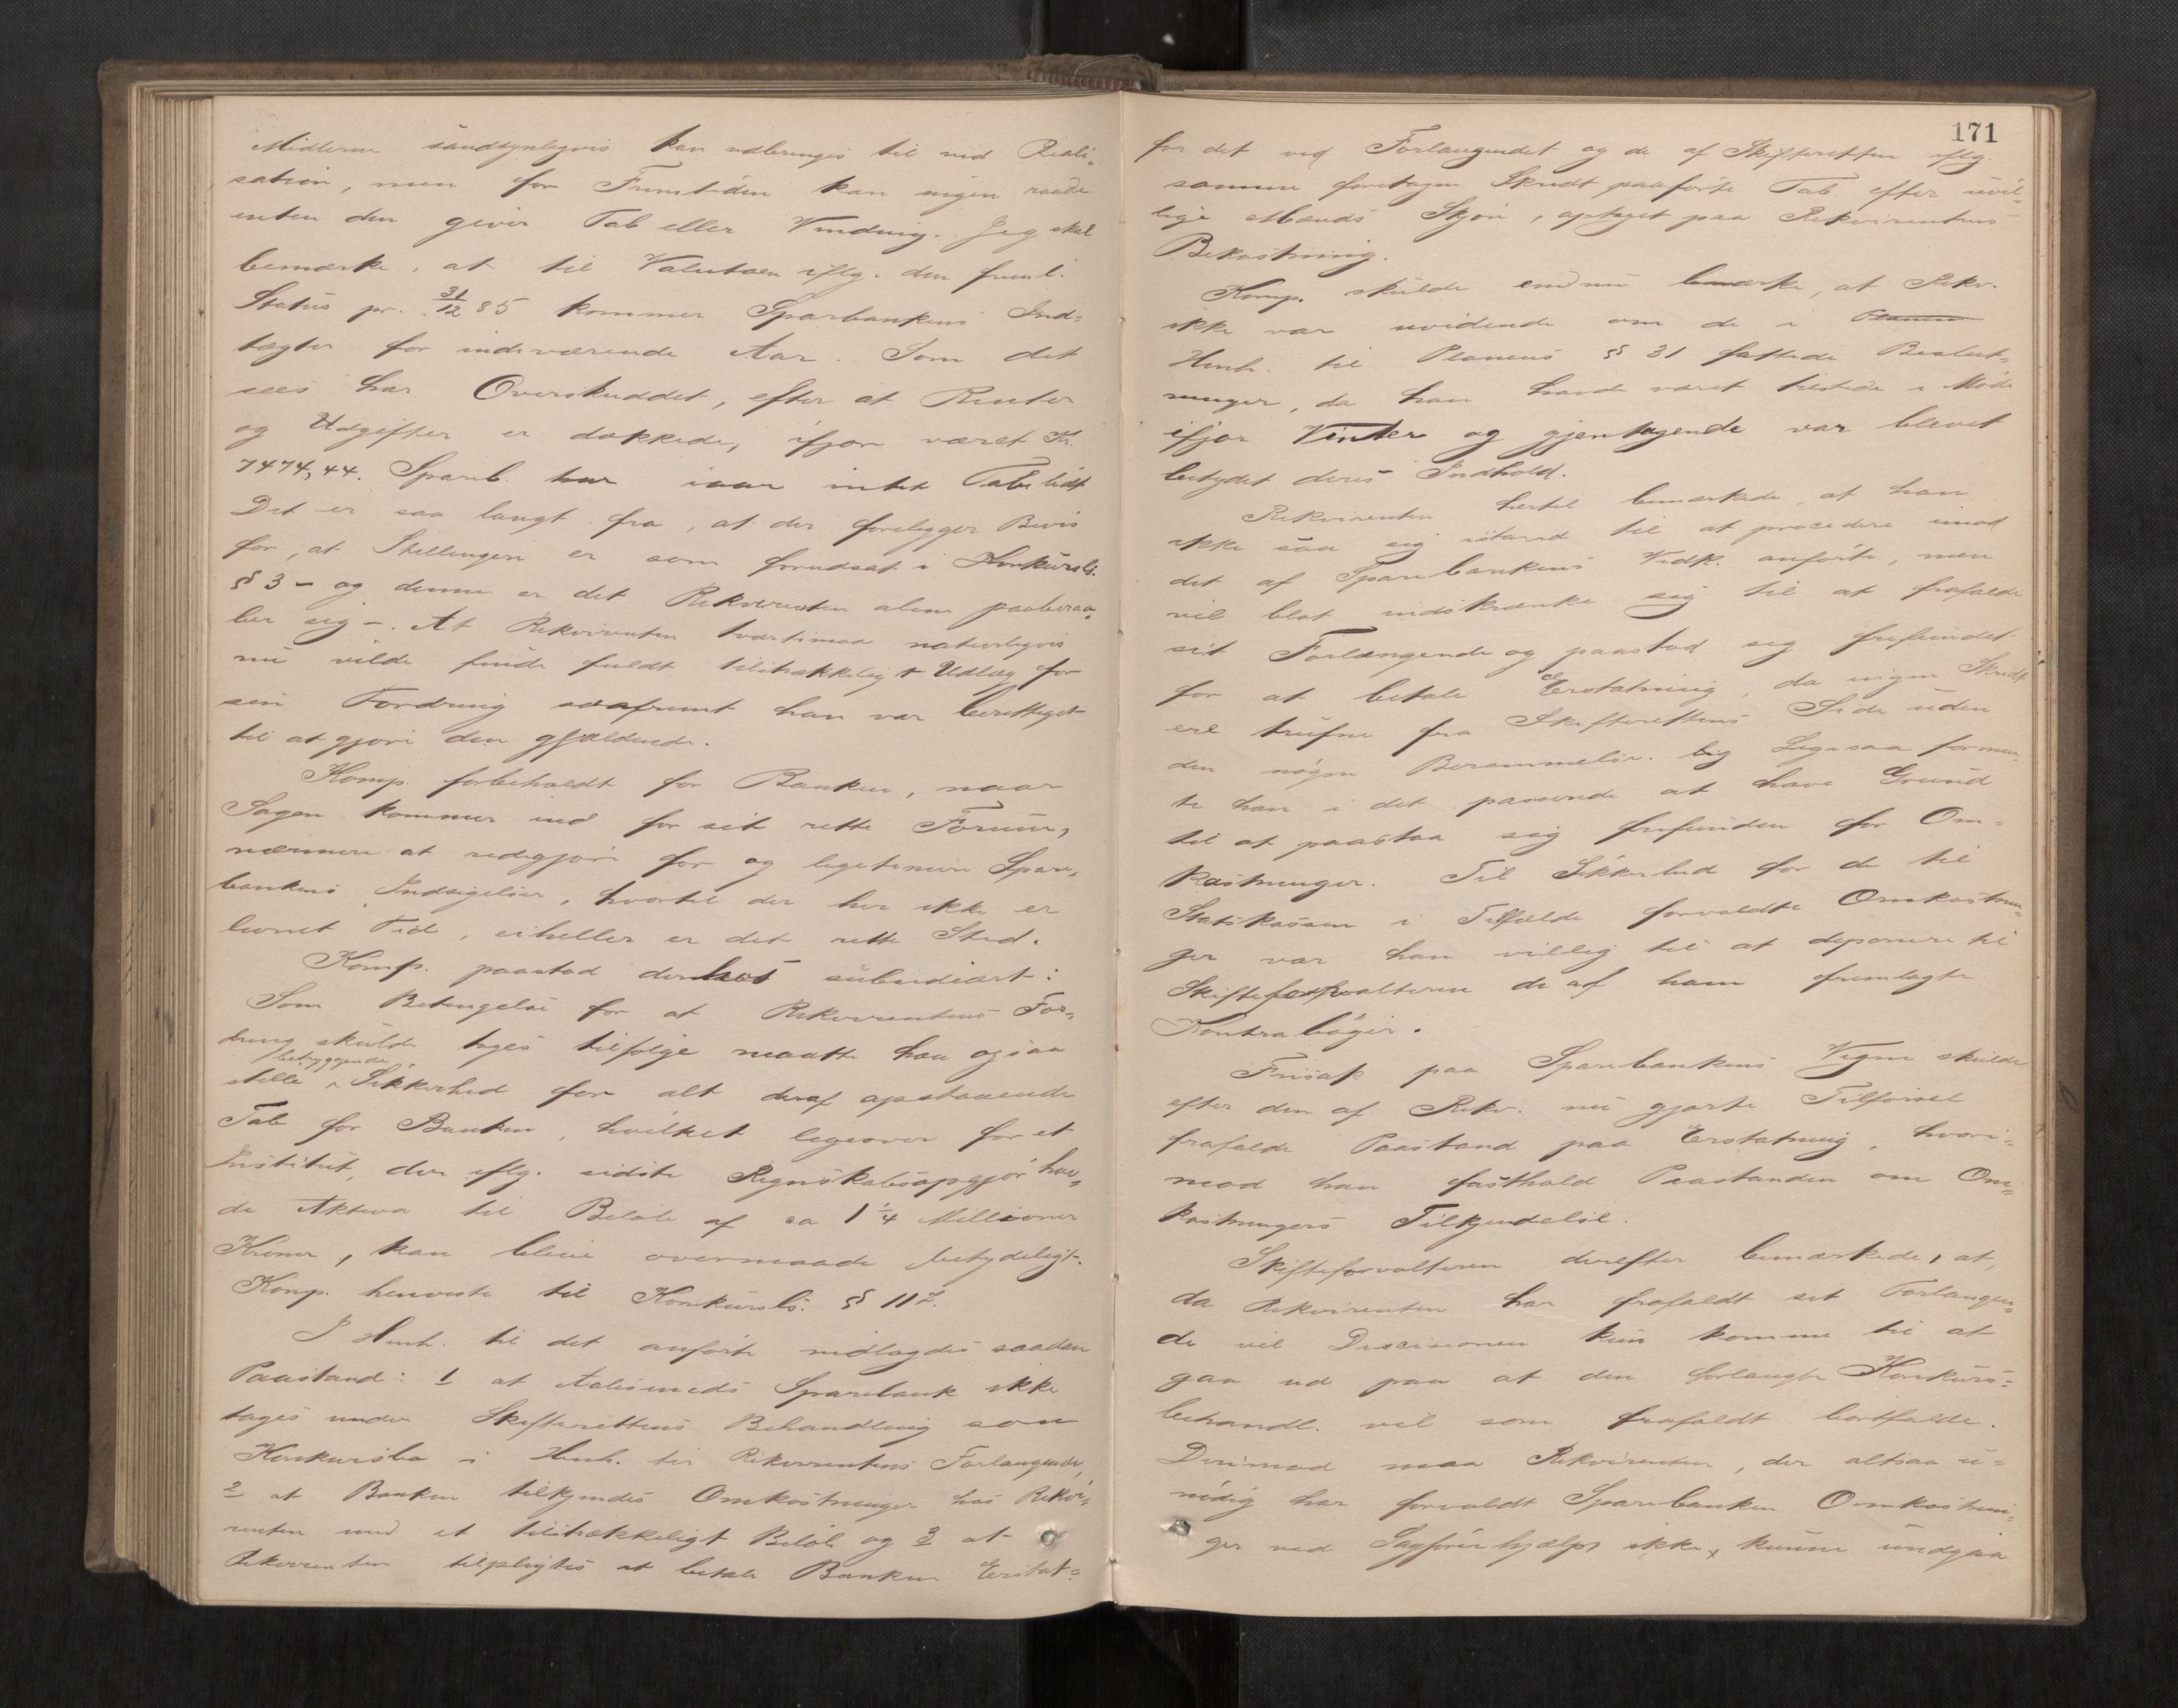 Midlerne sandsynligvis kan udbringes til ved Reali-
sation, men for Fremtiden kan ingen raade
enten den giver Tab eller Vinding. Jeg skal
bemærke, at til Valutaen iflg. den freml.
Status pr. 31/12 85 kommer Sparbankens Ind-
tægter for indeværende Aar. Som det
sees har Overskuddet, efter at Renter
og Udgifter er dækkede, ifjor været Kr.
7474,44. Spareb. har iaar intet Tab lidt
Det er saa langt fra, at der foreligger Bevis
for, at Stillingen er som forudsat i Konkursl.
§ 3 – og denne er det Rekvirenten alene paaberaa-
ber sig –. At Rekvirenten tvertimod naturligvis
nu vilde finde fuldt tilstrækkeligt Udlæg for
sin Fordring saafremt han var berettiget
til at gjøre den gjældende.
Komp. forbeholdt for Banken, naar
Sagen kommer ind for sit rette Forum,
nærmere at redegjøre for og legitimere Spare-
bankens Indsigelser, hvortil der her ikke er
levnet Tid, eiheller er det rette Sted.
Komp. paastod derhos subsidiært:
Som Betingelse for at Rekvirentens For-
dring skulde tages tilfølge maatte han ogsaa
betryggende
stille Sikkerhed for alt deraf opstaaende
Tab for Banken, hvilket ligeover for et
Institut, der iflg. sidste Regnskabsopgjør hav-
de Aktiva til Beløb af ca 1 1/4 Millioner
Kroner, kan blive overmaade betydeligt.
Komp. henviste til Konkursl. § 117.
I Henh. til det anførte nedlagdes saadan
Paastand: 1 at Aalesunds Sparebank ikke
tages under Skifterettens Behandling som
Konkursbo i Henh. til Rekvirentens Forlangende,
2 at Banken tilkjendes Omkostninger hos Rekvi-
renten med et tilstrækkeligt Beløb og 3 at
Rekvirenten tilpligtes at betale Banken Erstat-
171
for det ved Forlangendet og de af Skifteretten iflg.
samme foretagne Skridt paaførte Tab efter uvil-
lige Mænds Skjøn, optaget paa Rekvirentens
Bekostning.
Komp. skulde endnu bemærke, at Rekv.
ikke var uvidende om de i Planen
Henh. til Planens § 31 fattede Beslut-
ninger, da han havde været tilstede i Møde
ifjor Vinter og gjentagende var blevet
betydet deres Indhold.
Rekvirenten hertil bemærkede, at han
ikke saa sig istand til at procedere imod
det af Sparebankens Vedk. anførte, men
vil blot indskrænke sig til at frafalde
sit Forlangende og paastod sig frifundet
for at betale Erstatning, da ingen Skridt
ere trufne fra Skifterettens Side uden
den nøgne Berammelse. Ligesaa formen-
te han i det passerede at have Grund
til at paastaa sig frifunden for Om-
kostninger. Til Sikkerhed for de til
Statskassen i Tilfælde forvoldte Omkostnin-
ger var han villig til at deponere til
Skifteforvalteren de af ham fremlagte
Kontrabøger.
Frisak paa Sparebankens Vegne skulde
efter den af Rekv. nu gjorte Tilførsel
frafalde Paastand paa Erstatning, hvori-
mod han fastholdt Paastanden om Om-
kostningers Tilkjendelse.
Skifteforvalteren derefter bemærkede, at,
da Rekvirenten har frafaldt sit Forlangen-
de vil Decisionen kun komme til at
gaa ud paa at den forlangte Konkurs-
behandl. vil som frafaldt bortfalde.
Derimod maa Rekvirenten, der altsaa u-
nødig har forvoldt Sparebanken Omkostnin-
ger ved Sagførerhjælp, ikke kunne undgaa